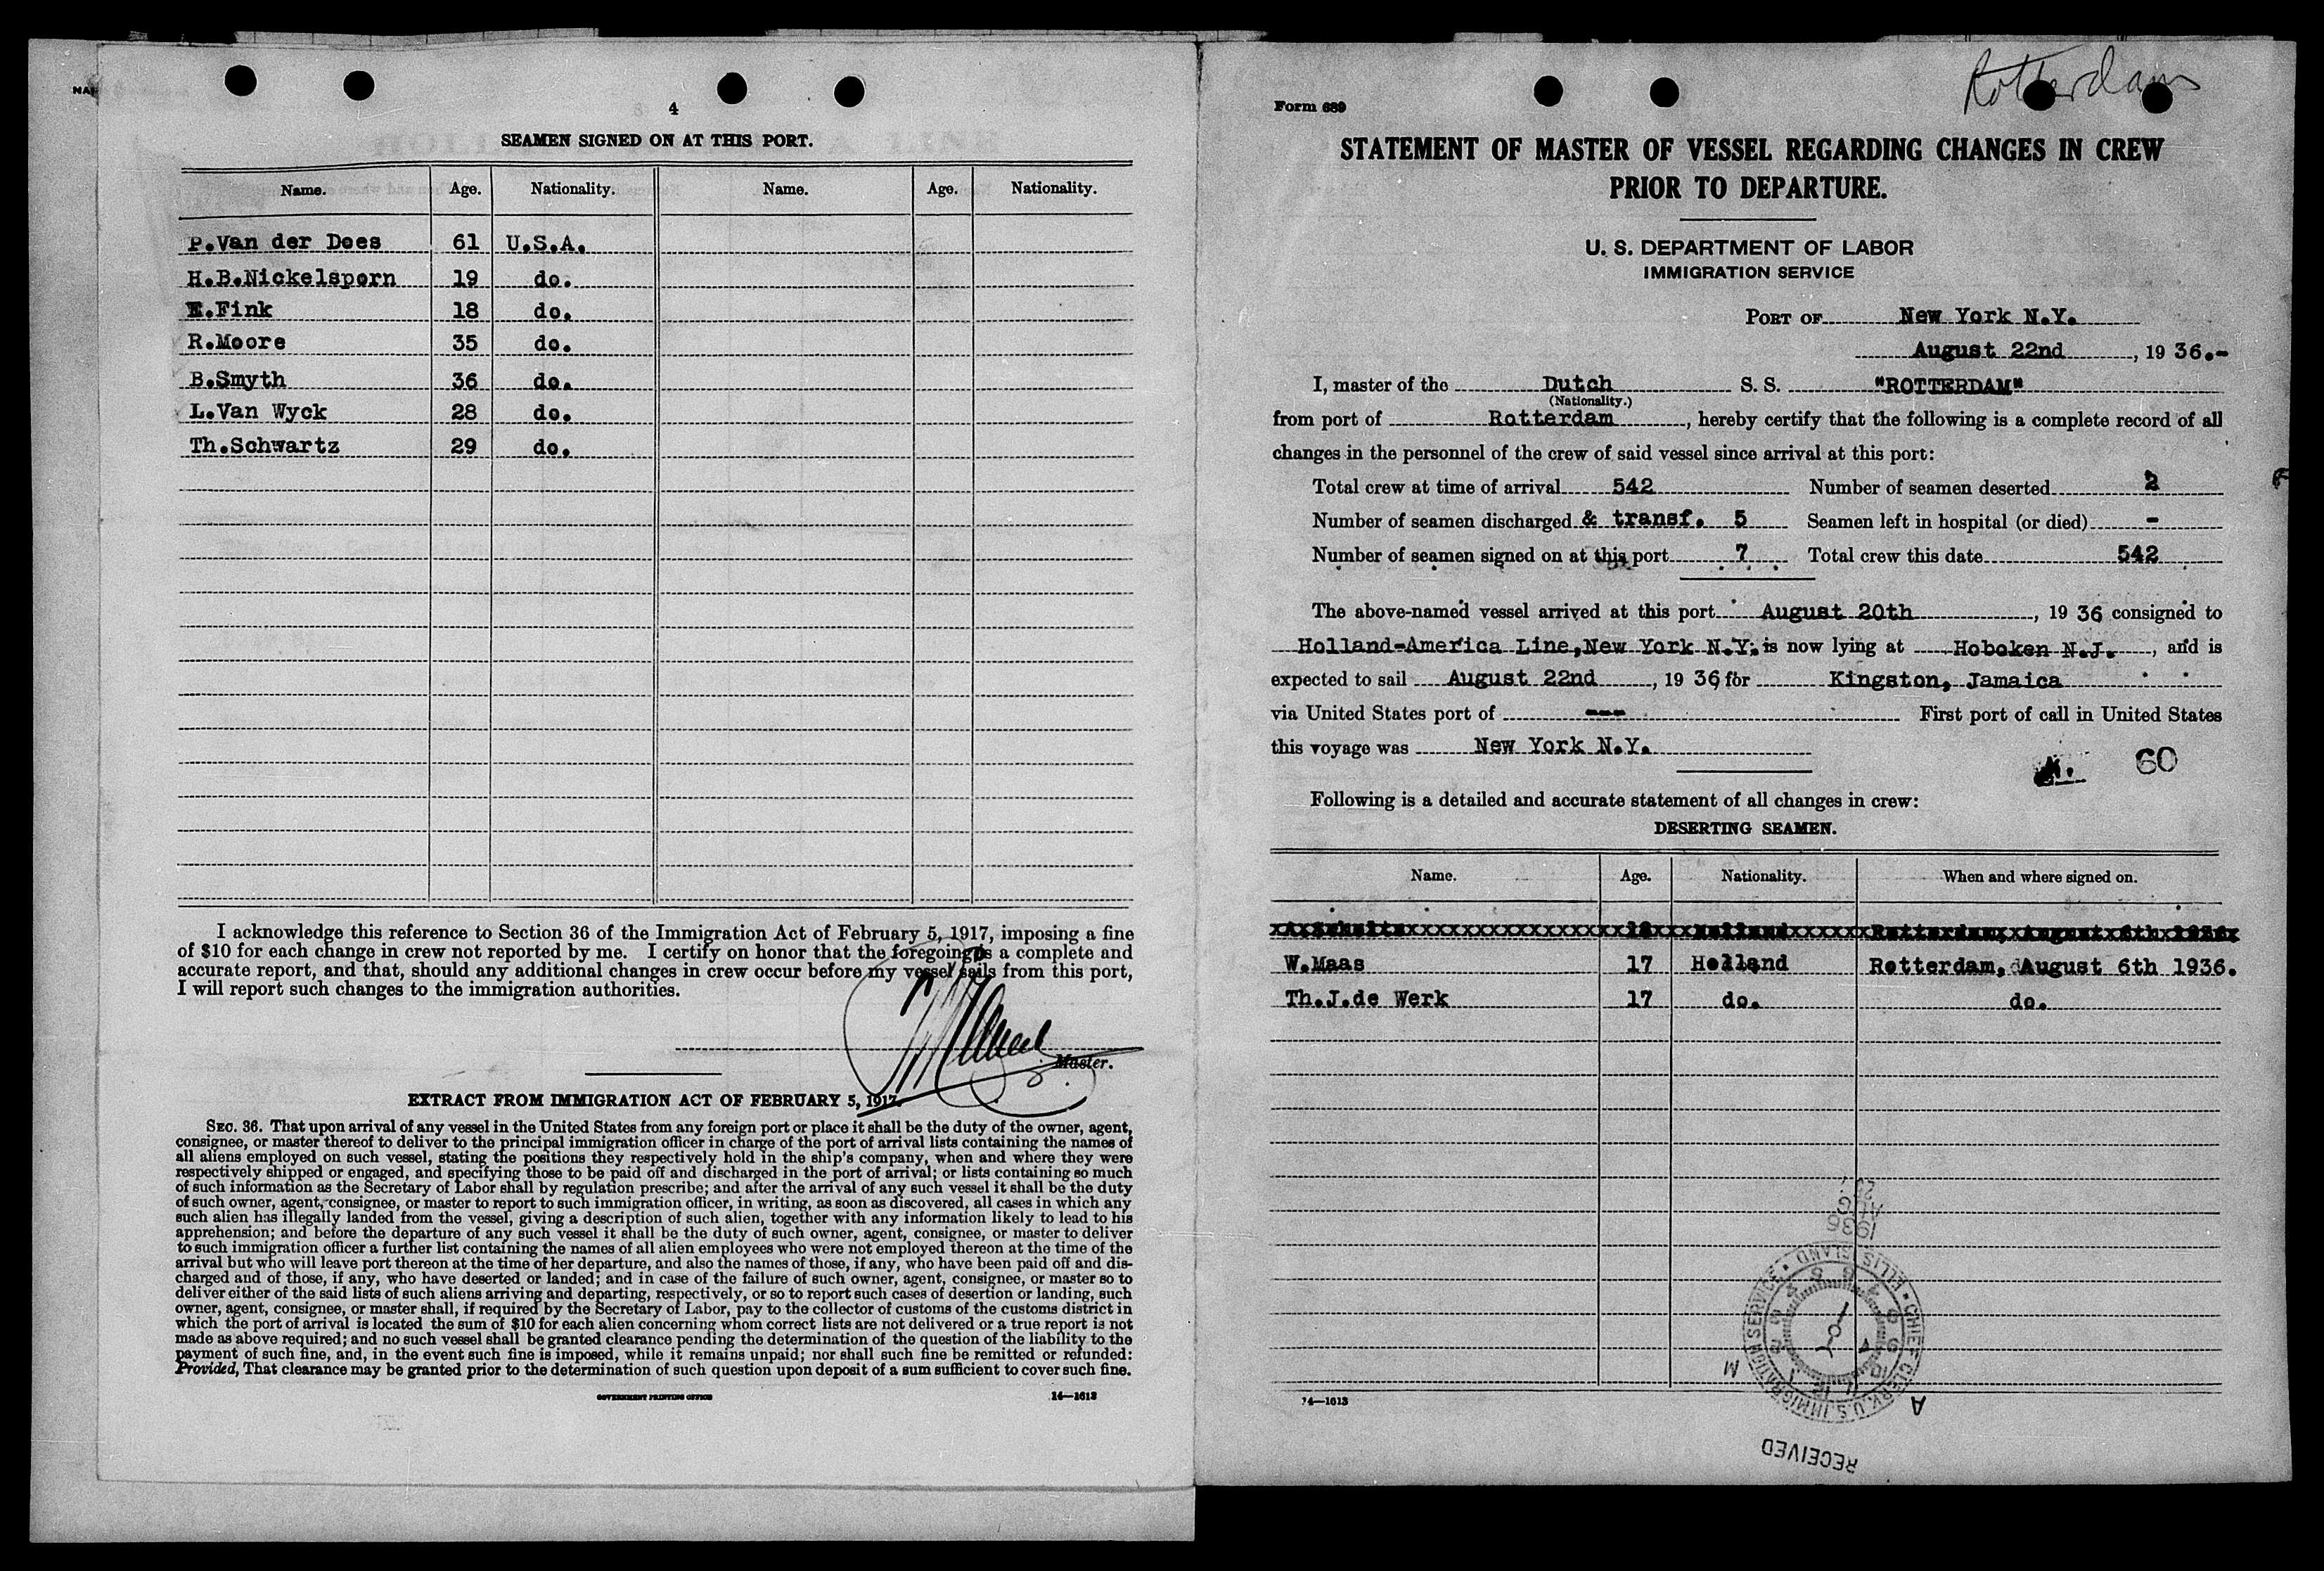 4
SEAMEN SIGNED ON AT THIS PORT.
Name. Age. Nationality. Name. Age. Nationality.
P.Van der Does 61 U.S.A.
H.B.Nickelsporn 19 do.
E.Fink 18 do.
R.Moore 35 do.
B.Smyth 36 do.
L.Van Wyck 28 do.
Th.Schwartz 29 do.
I acknowledge this reference to Section 36 of the Immigration Act of February 5, 1917, imposing a fine
of $10 for each change in crew not reported by me. I certify on honor that the foregoing is a complete and
accurate report, and that, should any additional changes in crew occur before my vessel sails from this port,
I will report such changes to the immigration authorities.
Master.
EXTRACT FROM IMMIGRATION ACT OF FEBRUARY 5, 1917.
SEC. 36. That upon arrival of any vessel in the United States from any foreign port or place it shall be the duty of the owner, agent,
consignee, or master thereof to deliver to the principal immigration officer in charge of the port of arrival lists containing the names of
all aliens employed on such vessel, stating the positions they respectively hold in the ship's company, when and where they were
respectively shipped or engaged, and specifying those to be paid off and discharged in the port of arrival; or lists containing so much
of such information as the Secretary of Labor shall by regulation prescribe; and after the arrival of any such vessel it shall be the duty
of such owner, agent, consignee, or master to report to such immigration officer, in writing, as soon as discovered, all cases in which any
such alien has illegally landed from the vessel, giving a description of such alien, together with any information likely to lead to his
apprehension; and before the departure of any such vessel it shall be the duty of such owner, agent, consignee, or master to deliver
to such immigration officer a further list containing the names of all alien employees who were not employed thereon at the time of the
arrival but who will leave port thereon at the time of her departure, and also the names of those, if any, who have been paid off and dis-
charged and of those, if any, who have deserted or landed; and in case of the failure of such owner, agent, consignee, or master so to
deliver either of the said lists of such aliens arriving and departing, respectively, or so to report such cases of desertion or landing, such
owner, agent, consignee, or master shall, if required by the Secretary of Labor, pay to the collector of customs of the customs district in
which the port of arrival is located the sum of $10 for each alien concerning whom correct lists are not delivered or a true report is not
made as above required; and no such vessel shall be granted clearance pending the determination of the question of the liability to the
payment of such fine, and, in the event such fine is imposed, while it remains unpaid; nor shall such fine be remitted or refunded:
Provided, That clearance may be granted prior to the determination of such question upon deposit of a sum sufficient to cover such fine.
GOVERNMENT PRINTING OFFICE 14—1613
Rotterdam
Form 689
STATEMENT OF MASTER OF VESSEL REGARDING CHANGES IN CREW
PRIOR TO DEPARTURE.
U. S. DEPARTMENT OF LABOR
IMMIGRATION SERVICE
PORT OF New York N.Y.
August 22nd, 19 36.-
I, master of the Dutch S. S. "ROTTERDAM"
(Nationality.)
from port of Rotterdam, hereby certify that the following is a complete record of all
changes in the personnel of the crew of said vessel since arrival at this port:
Total crew at time of arrival 542 Number of seamen deserted 2
Number of seamen discharged & transf. 5 Seamen left in hospital (or died) -
Number of seamen signed on at this port 7 Total crew this date 542
The above-named vessel arrived at this port August 20th, 19 36 consigned to
Holland-America Line,New York N.Y. is now lying at Hoboken N.J., and is
expected to sail August 22nd, 19 36 for Kingston, Jamaica
via United States port of --- First port of call in United States
this voyage was New York N.Y.
60
Following is a detailed and accurate statement of all changes in crew:
DESERTING SEAMEN.
Name. Age. Nationality. When and where signed on.
W.Maas 17 Holland Rotterdam, August 6th 1936.
Th.J.de Werk 17 do. do.
14—1613
1936
CHIEF CLERK, U.S. IMMIGRATION SERVICE • ELLIS ISLAND
A M
RECEIVED